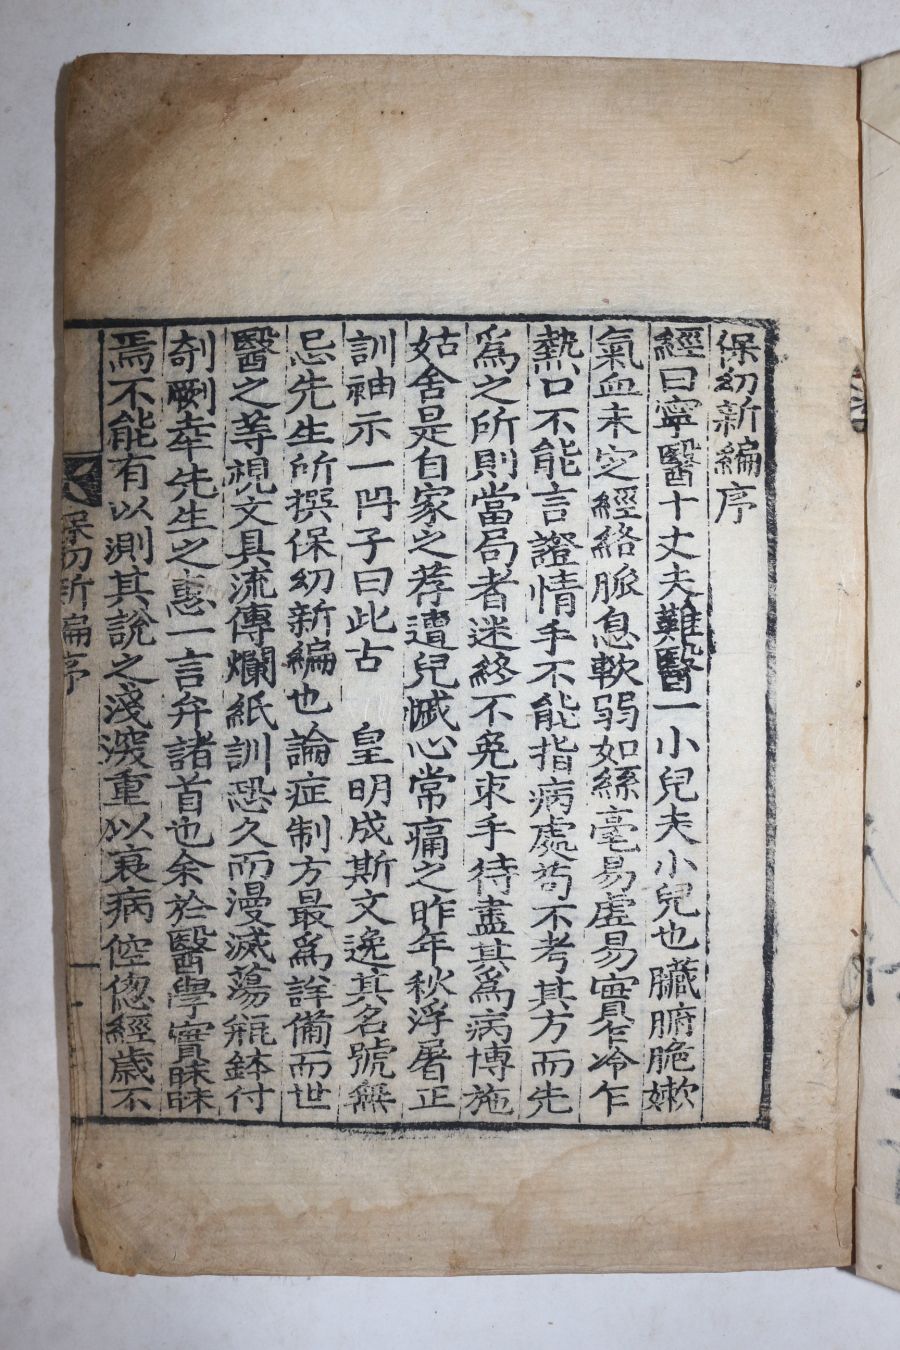 保幼新編序
經曰寧醫十丈夫難醫一小兒夫小兒也臟腑脆嫰
氣血未定經絡脈息軟弱如絲毫易虛易實乍冷乍
熱口不能言證情手不能指病處苟不考其方而先
爲之所則當局者迷終不免束手待盡其爲病博施
姑舍是自家之荐遭兒慽心常痛之昨年秋浮屠正
訓袖示一冊子曰此古 皇明成斯文逸其名號無
忌先生所撰保幼新編也論症制方最爲詳備而世
醫之等視文具流傳爛紙訓恐久而漫滅蕩瓶鉢付
剞劂幸先生之惠一言弁諸首也余於醫學實昧昧
焉不能有以測其說之淺深重以衰病倥傯經歲不
保幼新編序